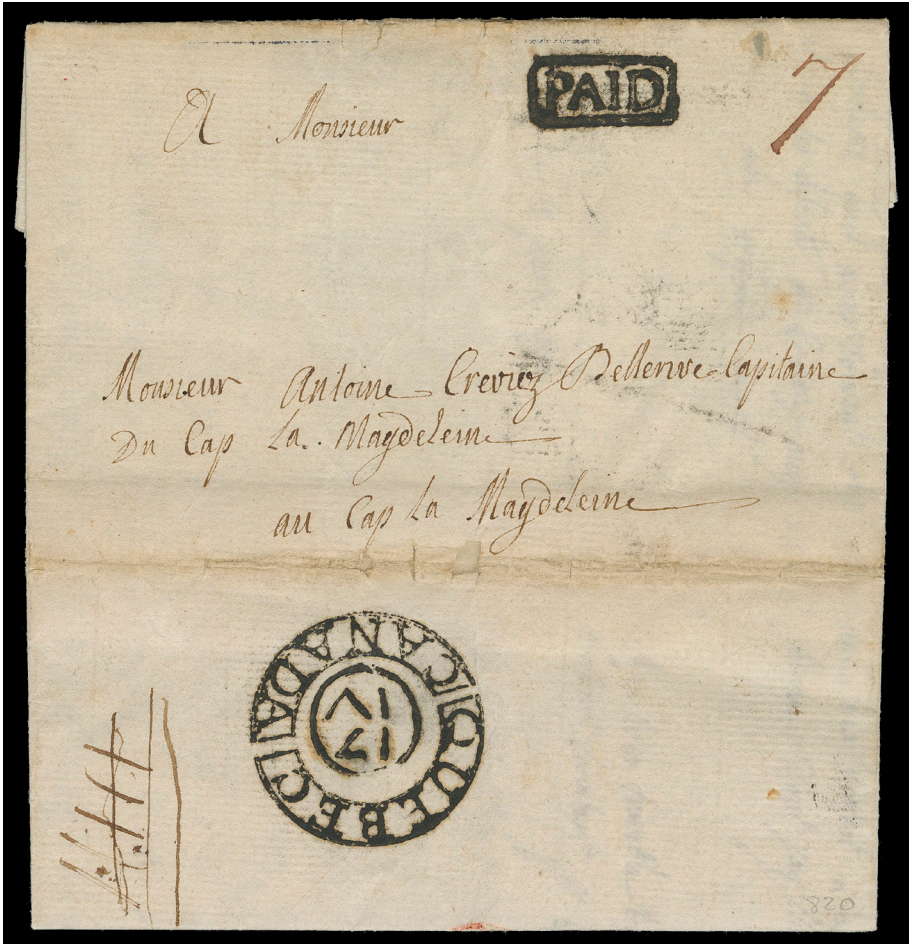 PAID
7
A Monsieur
Monsieur Antoine Creviez Bellerive Capitaine
Du Cap La Magdeleine
au Cap La Magdeleine
QUEBEC CANADA
820